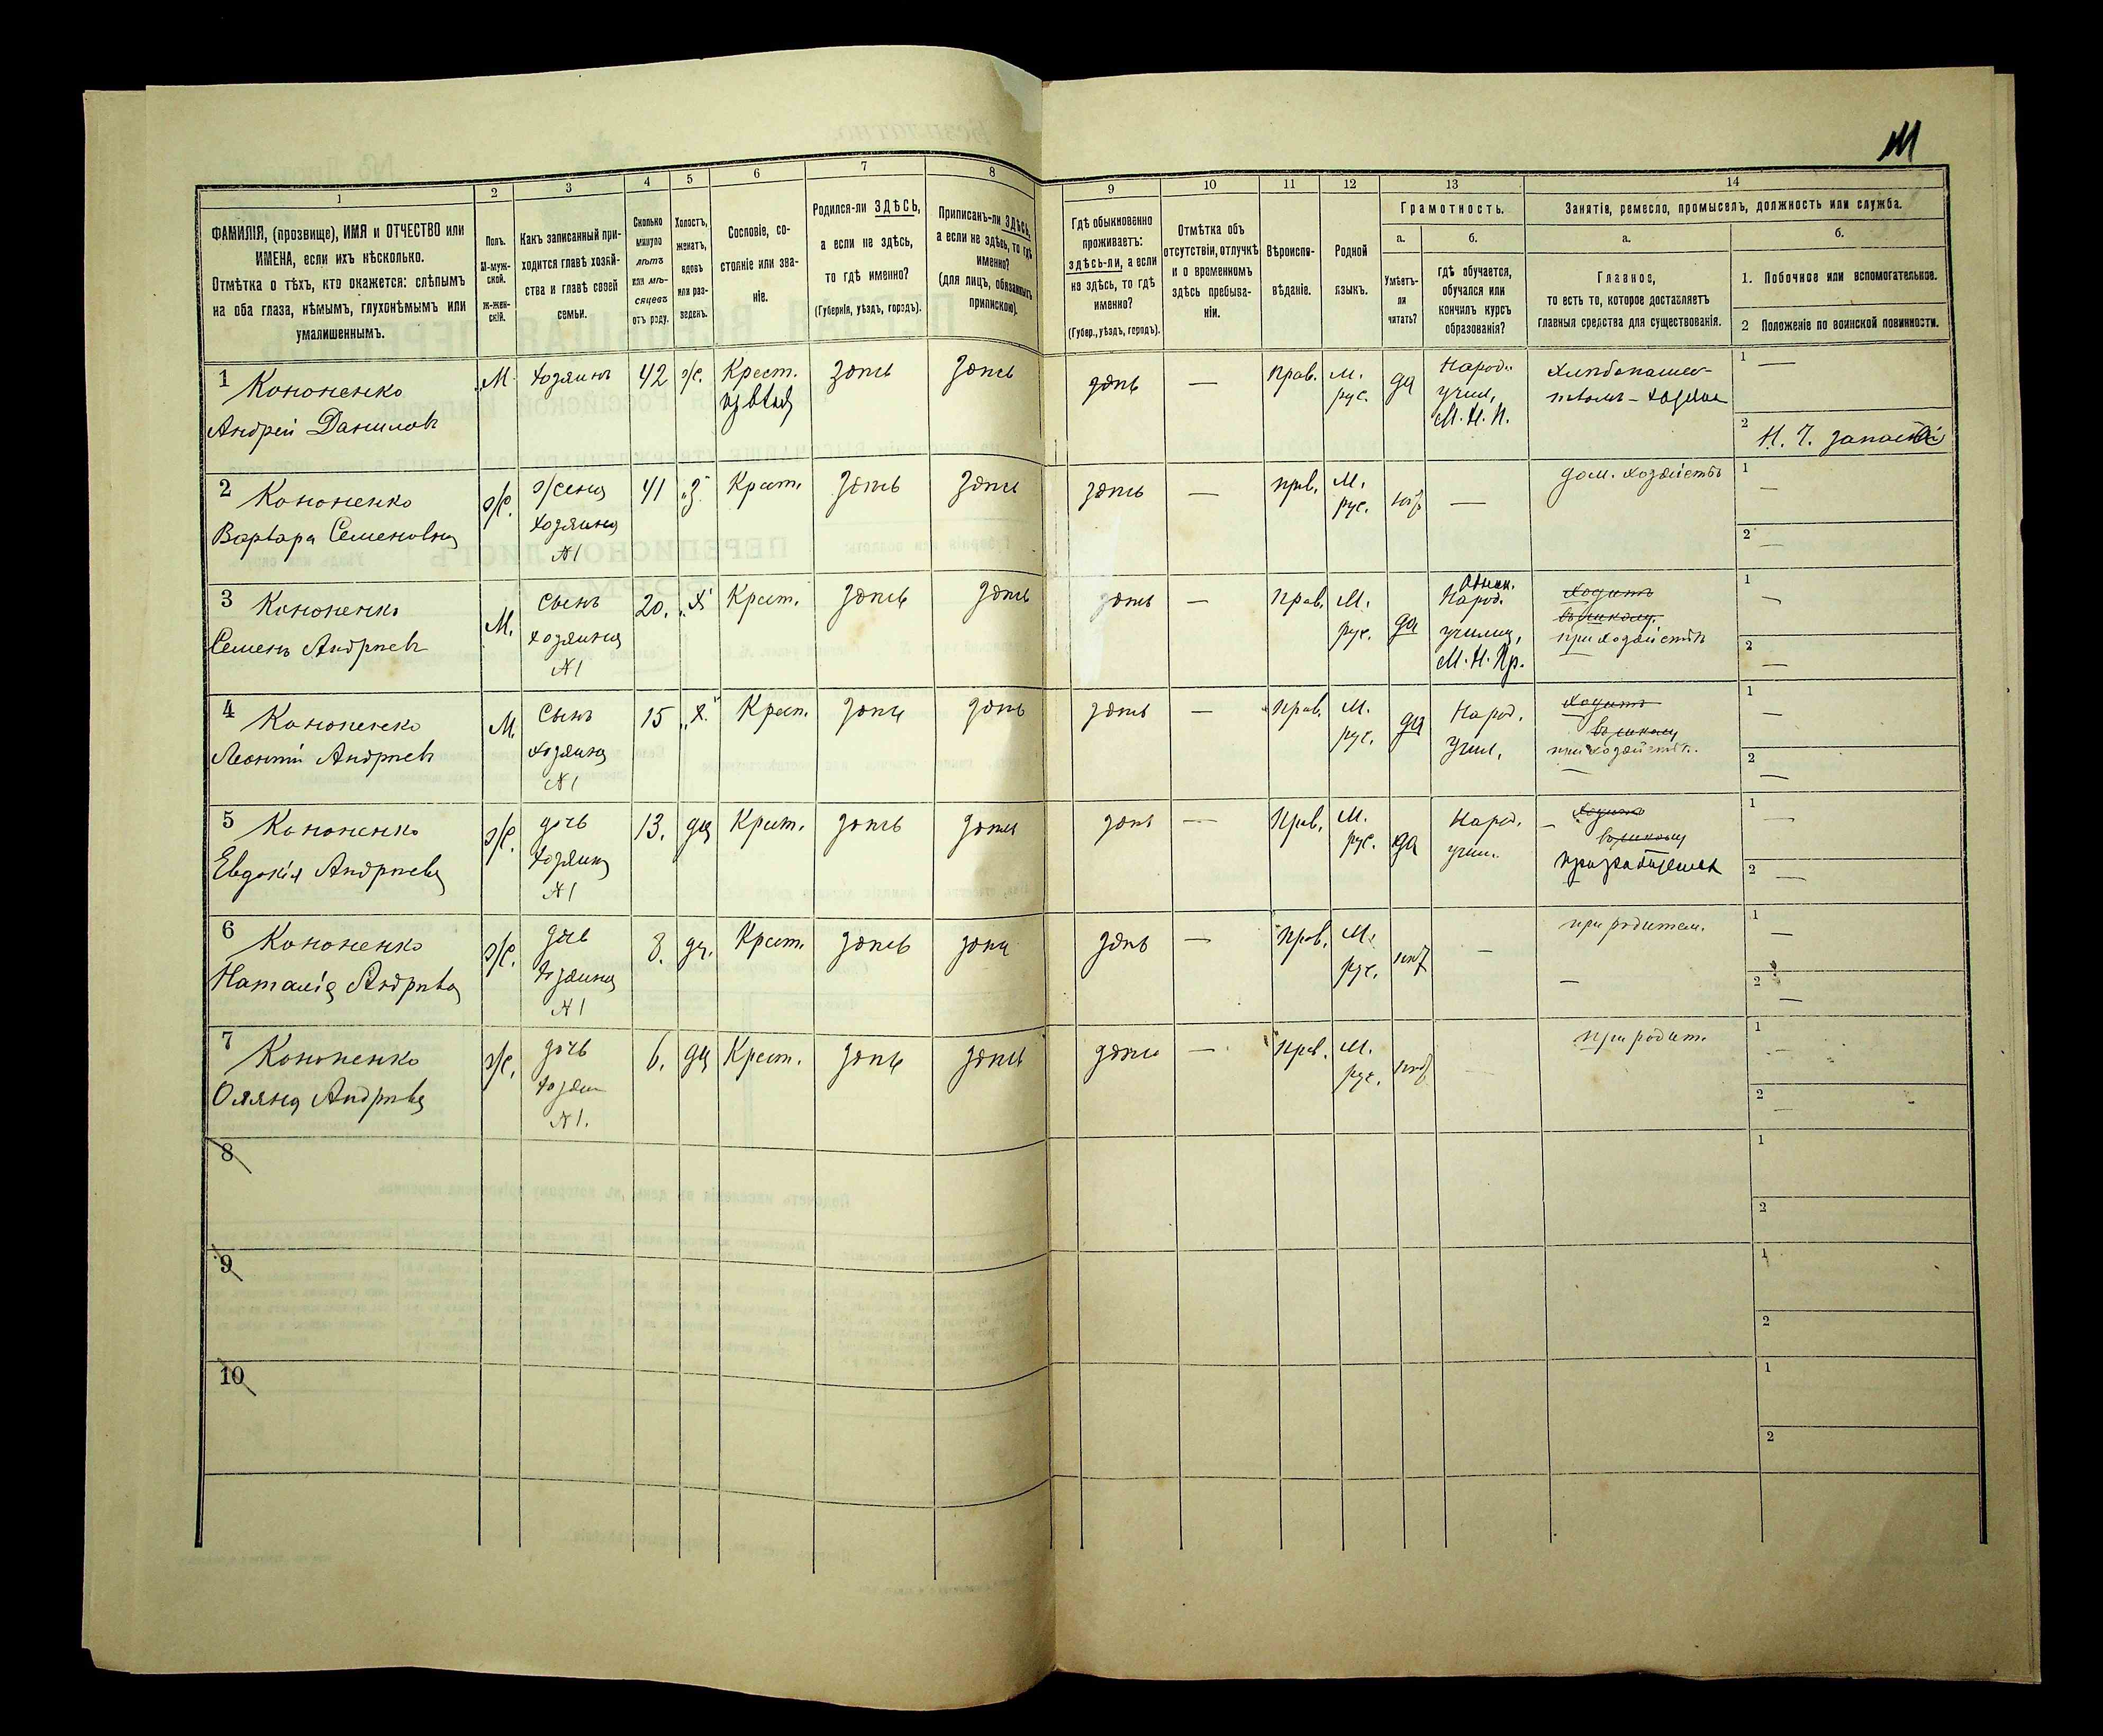 М
1
2
3
4
5
6
7
8
9
10
11
12
13
14
ФАМИЛІЯ, (прозвище), ИМЯ и ОТЧЕСТВО или
ИМЕНА, если ихъ нѣсколько.
Отмѣтка о тѣхъ, кто окажется: слѣпымъ
на оба глаза, нѣмымъ, глухонѣмымъ или
умалишеннымъ.
Полъ.
М-муж-
ской.
Ж-жен-
скій.
Какъ записанный при-
ходится главѣ хозяй-
ства и главѣ своей
семьи.
Сколько
минуло
лѣтъ
или мѣ-
сяцевъ
отъ роду.
Холостъ,
женатъ,
вдовъ
или раз-
веденъ.
Сословіе, со-
стояніе или зва-
ніе.
Родился-ли ЗДѢСЬ,
а если не здѣсь,
то гдѣ именно?
(Губернія, уѣздъ, городъ).
Приписанъ-ли ЗДѢСЬ,
а если не здѣсь, то гдѣ
именно?
(для лицъ, обязанныхъ
припискою).
Гдѣ обыкновенно
проживаетъ:
здѣсь-ли, а если
не здѣсь, то гдѣ
именно?
(Губер., уѣздъ, городъ).
Отмѣтка объ
отсутствіи, отлучкѣ
и о временномъ
здѣсь пребыва-
ніи.
Вѣроиспо-
вѣданіе.
Родной
языкъ.
Грамотность.
а.
Умѣетъ-
ли
читать?
б.
гдѣ обучается,
обучался или
кончилъ курсъ
образованія?
Занятіе, ремесло, промыселъ, должность или служба.
а.
Главное,
то есть то, которое доставляетъ
главныя средства для существованія.
б.
1. Побочное или вспомогательное.
2 Положеніе по воинской повинности.
1 Кононенко
Андрей Даниловъ
М
Хозяинъ
42
ж.
Крест.
здѣсь
здѣсь
здѣсь
—
Прав.
М.
рус.
да
Народ.
учил,
М. Н. П.
1 —
2 Н. Ч. запасной
2 Кононенко
Варвара Семеновна
ж.
жена
хозяина
№1
41
"З."
Крест.
здѣсь
здѣсь
здѣсь
—
прав.
М.
рус.
нѣт
—
дом. хозяйствѣ
1 —
2 —
3 Кононенко
Семенъ Андреевъ
М.
Сынъ
хозяина
№1
20.
"Х"
Крест.
здѣсь
здѣсь
здѣсь
—
Прав.
М.
рус.
да
Народ.
училищ,
М. Н. Пр.
Ходитъ
въ школу
при хозяйствѣ
1 —
2 —
4 Кононенко
Леонтій Андреевъ
М.
Сынъ
хозяина
№1
15
"Х."
Крест.
здѣсь
здѣсь
здѣсь
—
Прав.
М.
рус.
да
Народ.
Учил,
Ходитъ
въ школу
при хозяйств.
—
1 —
2 —
5 Кононенко
Евдокія Андреева
ж.
дочь
хозяина
№1
13.
дц
Крест.
здѣсь
здѣсь
здѣсь
—
Прав.
М.
рус.
да
Народ.
учил.
— Ходитъ
въ школу
при родителях
1 —
2 —
6 Кононенко
Наталія Андреева
ж.
дочь
хозяина
№1
8.
дц.
Крест.
здѣсь
здѣсь
здѣсь
—
Прав.
М.
рус.
нѣт
—
при родител.
—
1 —
2 —
7 Кононенко
Оляна Андреева
ж.
дочь
хозяин
№1.
6.
дц
Крест.
здѣсь
здѣсь
здѣсь
—
Прав.
М.
рус.
нѣт
при родит.
1 —
2 —
8
1
2
9
1
2
10
1
2